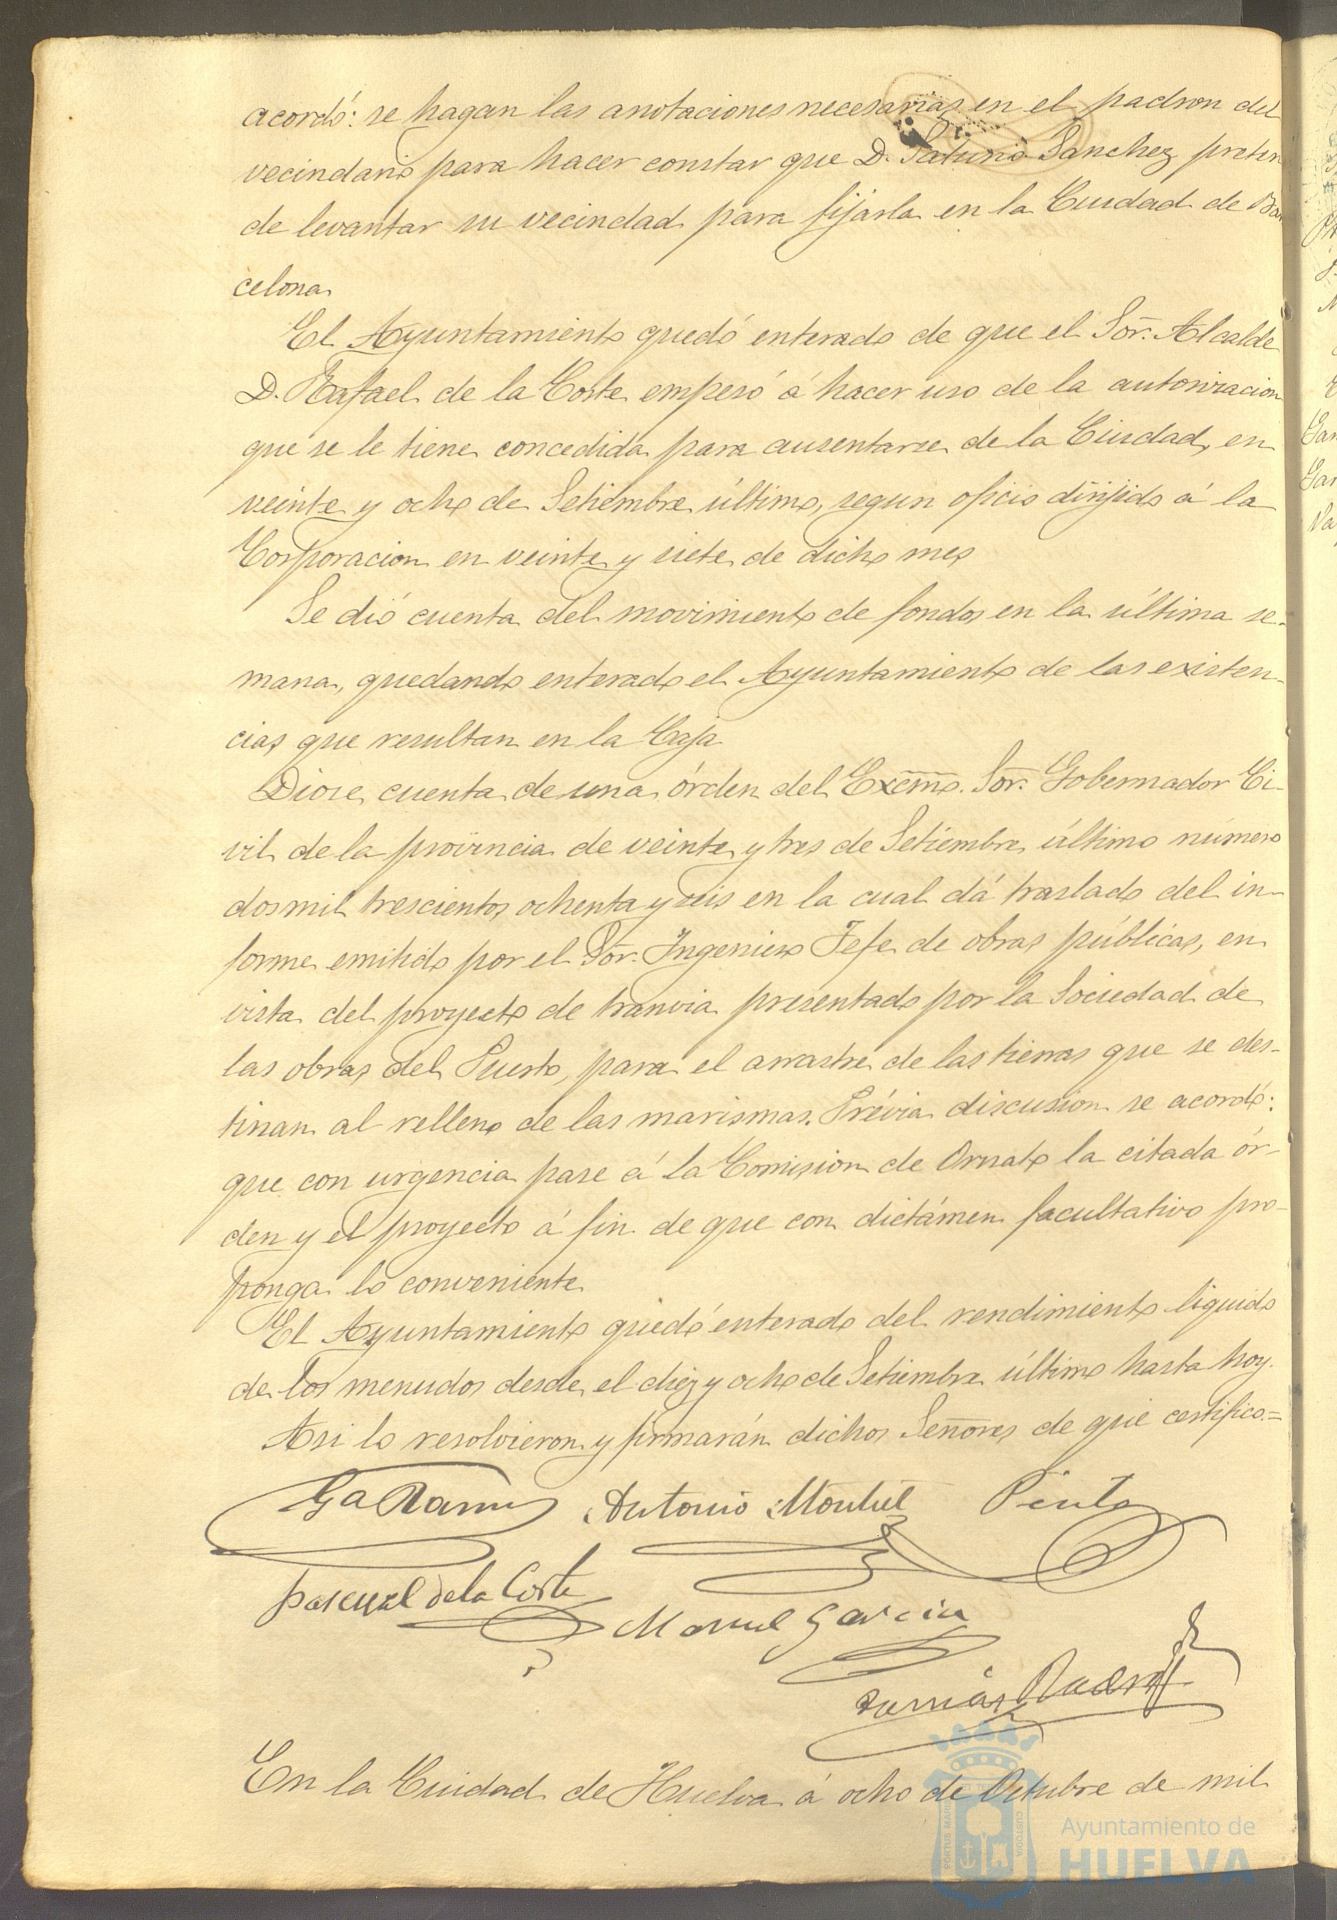 acordó: se hagan las anotaciones necesarias en el padron del
vecindario para hacer constar que D. Saturio Sanchez preten
de levantar su vecindad para fijarla en la Ciudad de Bar
celona
El Ayuntamiento quedó enterado de que el Sor. Alcalde
D. Rafael de la Corte empesó á hacer uso de la autorizacion
que se le tiene concedida para ausentarse de la Ciudad, en
veinte y ocho de Setiembre último, segun oficio dirijido á la
Corporacion en veinte y siete de dicho mes
Se dió cuenta del movimiento de fondos en la última se-
mana, quedando enterado el Ayuntamiento de las existen-
cias que resultan en la Caja
Diose cuenta de una órden del Excmo. Sor. Gobernador Ci-
vil de la provincia de veinte y tres de Setiembre último número
dos mil trescientos ochenta y seis en la cual dá traslado del in-
forme emitido por el Sor. Ingeniero Jefe de obras públicas, en
vista del proyecto de tranvia presentado por la Sociedad de
las obras del Puerto, para el arrastre de las tierras que se des-
tinan al relleno de las marismas. Prévia discusion se acordó:
que con urgencia pase á la Comision de Ornato la citada ór-
den y el proyecto á fin de que con dictámen facultativo pro-
ponga lo conveniente
El Ayuntamiento quedó enterado del rendimiento liquido
de los menudos desde el diez y ocho de Setiembre último hasta hoy.
Asi lo resolvieron y firmarán dichos Señores de que certifico.=
Ga Ramos Antonio Montiel Pinto
Pascual de la Corte
Manuel Garcia
Tomás
En la Ciudad de Huelva á ocho de Octubre de mil
Ayuntamiento de
HUELVA